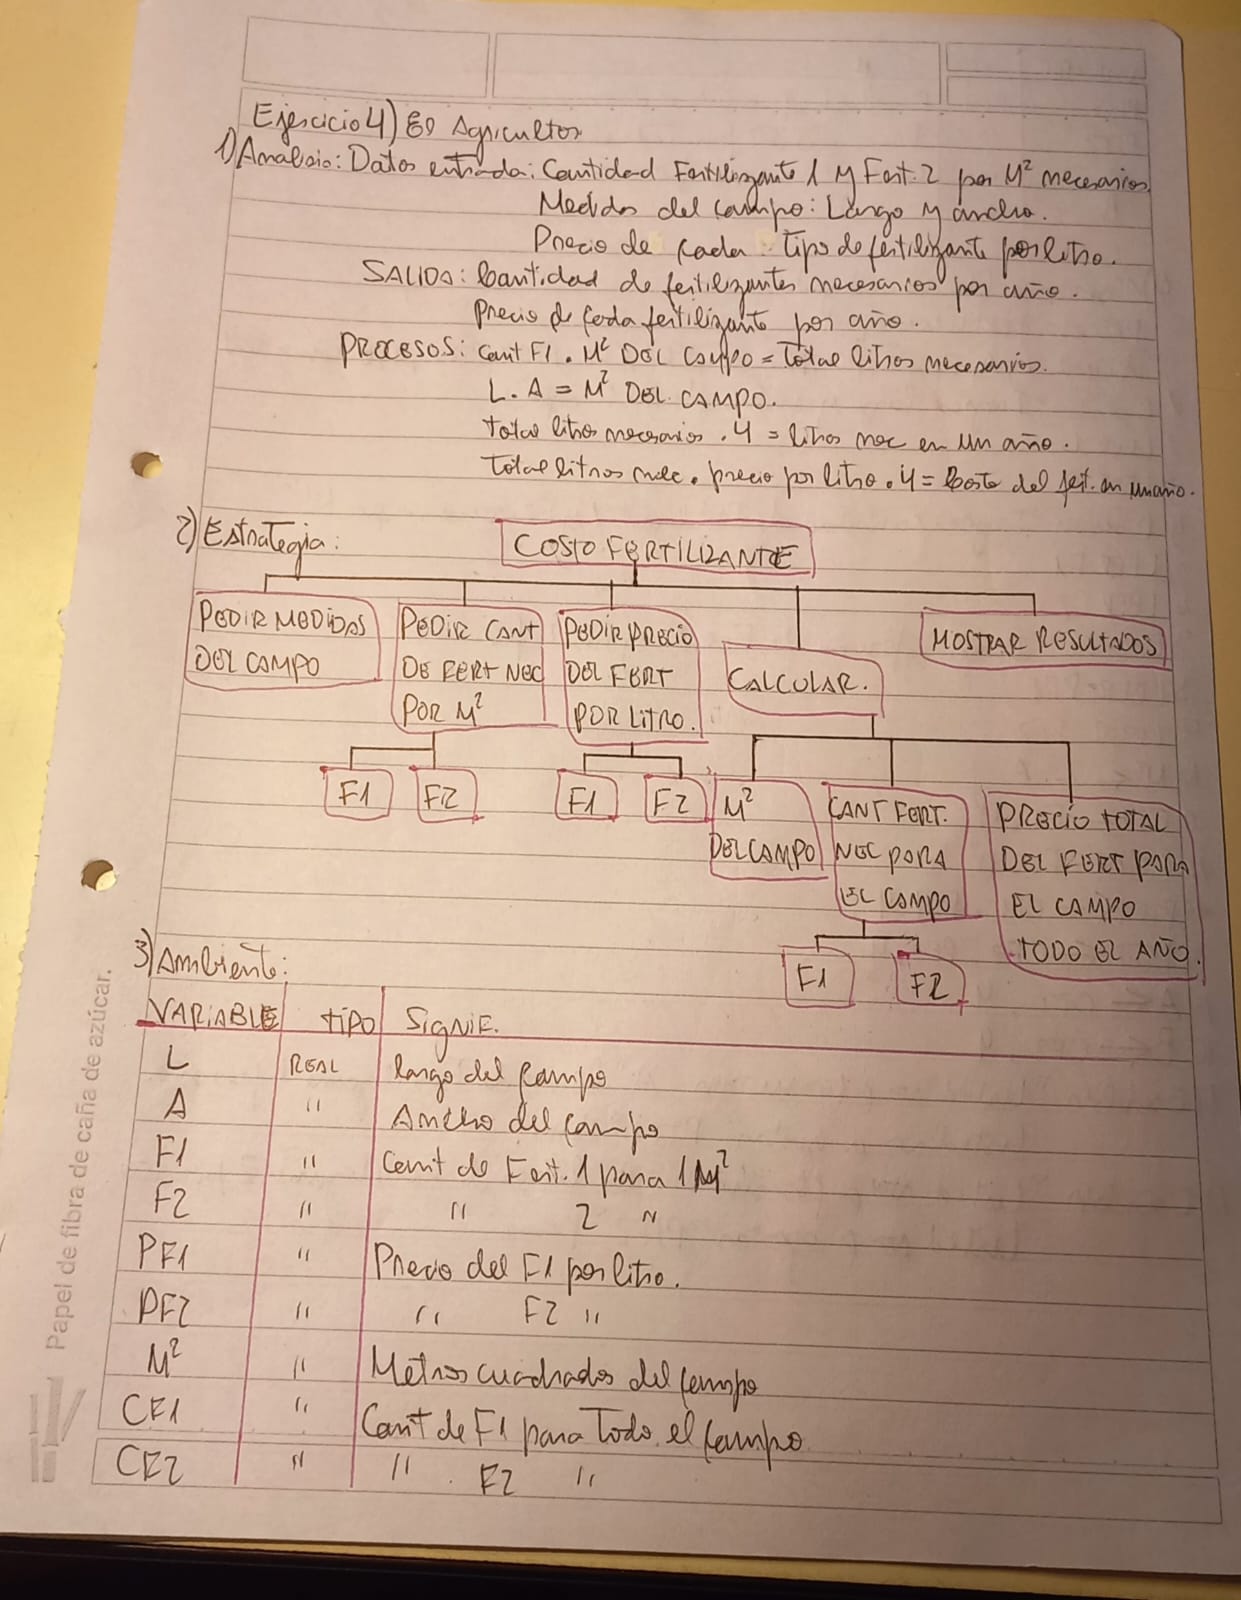 Ejercicio 4) El Agricultor
1) Analisis: Datos entrada: Cantidad Fertilizante 1 y Fert. 2 por M² necesarios
Medidas del campo: Largo y ancho.
Precio de cada tipo de fertilizante por litro.
SALIDA: Cantidad de fertilizantes necesarios por año.
Precio de cada fertilizante por año.
PROCESOS: cant F1 . M² DEL CAMPO = Total litros necesarios.
L. A = M² DEL CAMPO.
total litros necesarios . 4 = litros nec en un año.
Total litros nec . precio por litro . 4 = Costo del fert. en un año.
2) Estrategia:
COSTO FERTILIZANTE
PEDIR MEDIDAS
DEL CAMPO
PEDIR CANT
DE FERT NEC
POR M²
PEDIR PRECIO
DEL FERT
POR LITRO.
CALCULAR.
MOSTRAR RESULTADOS
F1
F2
F1
F2
M²
DEL CAMPO
CANT FERT.
NEC PARA
EL CAMPO
PRECIO TOTAL
DEL FERT PARA
EL CAMPO
TODO EL AÑO.
F1
F2
3) Ambiente:
VARIABLE TIPO SIGNIF.
L REAL largo del campo
A " Ancho del campo
F1 " Cant de Fert. 1 para 1 M²
F2 " " 2 "
PF1 " Precio del F1 por litro.
PF2 " " F2 "
M² " Metros cuadrados del campo
CF1 " Cant de F1 para Todo el campo
CF2 " " F2 "
Papel de fibra de caña de azúcar.